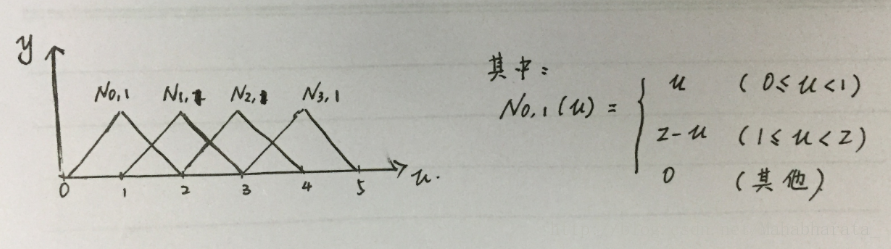 y
N0,1 N1,1 N2,1 N3,1
0 1 2 3 4 5 u.
其中:
N0,1(u) = { u (0≤u<1)
2-u (1≤u<2)
0 (其他)